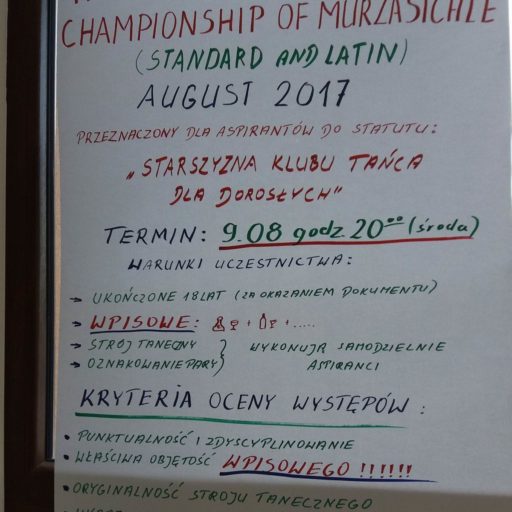 CHAMPIONSHIP OF MURZASICHLE
(STANDARD AND LATIN)
AUGUST 2017
PRZEZNACZONY DLA ASPIRANTÓW DO STATUTU:
„STARSZYZNA KLUBU TAŃCA
DLA DOROSŁYCH"
TERMIN: 9.08 godz. 20⁰⁰ (środa)
WARUNKI UCZESTNICTWA:
→ UKOŃCZONE 18 LAT (ZA OKAZANIEM DOKUMENTU)
→ WPISOWE: + + .....
→ STRÓJ TANECZNY } WYKONUJĄ SAMODZIELNIE
→ OZNAKOWANIE PARY } ASPIRANCI
KRYTERIA OCENY WYSTĘPÓW:
• PUNKTUALNOŚĆ I ZDYSCYPLINOWANIE
• WŁAŚCIWA OBJĘTOŚĆ WPISOWEGO !!!!!!
• ORYGINALNOŚĆ STROJU TANECZNEGO